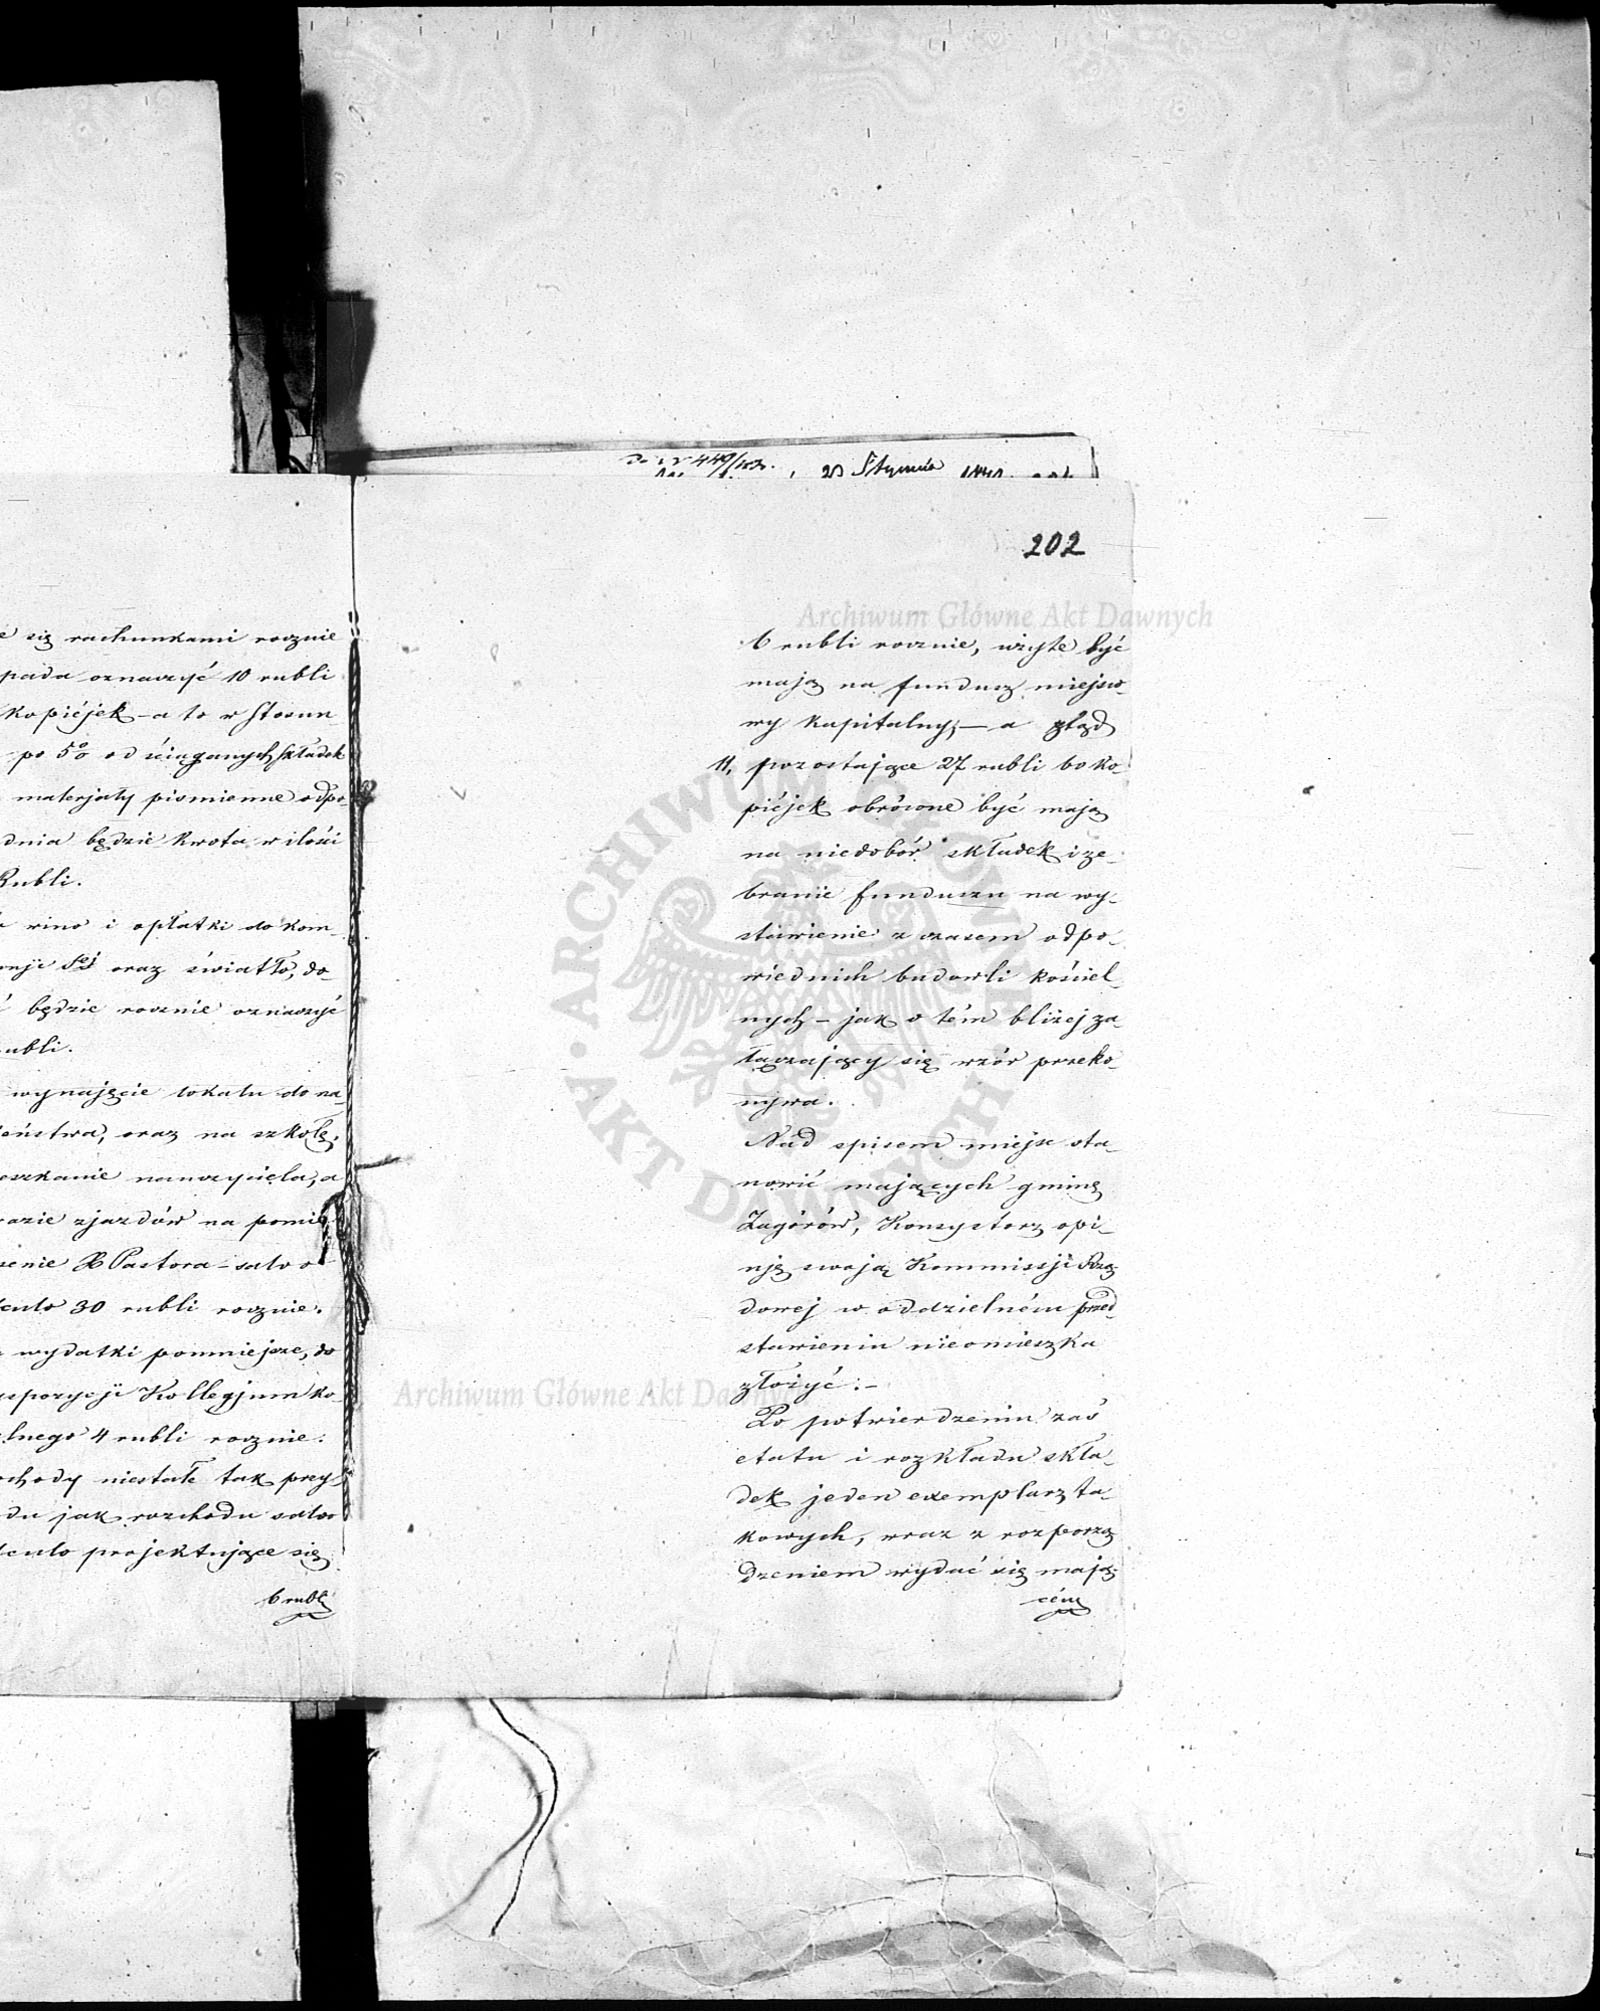 e się rachunkami rocznie
pada oznaczyć 10 rubli
kopiéjek - a to w stosun
po 5% od ściąganych składek
materjały piśmienne odpo-
dnia będzie kwota w ilości
Rubli.
wino i opłatki do kom-
nji Sej oraz światło, do-
będzie rocznie oznaczyć
ubli.
wynajęcie lokalu do na-
żeństwa, oraz na szkołę,
eszkanie nauczyciela, a
razie zjazdów na pomie
zenie X Pastora - salvo
culo 30 rubli rocznie.
wydatki pomniejsze, do
yspozycji Kollegjum ko-
lnego 4 rubli rocznie.
ochody niestałe tak przy-
du jak rozchodu salvo
culo projektujące się
6 rubli
449 20 Stycznia
202
6 rubli rocznie, użyte być
mają na fundusz miejsco-
wy kapitalny; - a ztąd
11, pozostające 27 rubli 60 ko-
piéjek obrócone być mają
na niedobór składek i ze-
branie funduszu na wy-
stawienie z czasem odpo-
wiednich budowli kościel-
nych - jak o tém bliżej za-
łączający się wzór przeko-
nywa.
Nad spisem miejsc sta-
nowić mających gminę
Zagórów, Konsystorz opi-
nję swoją Kommissji Rzą-
dowej w oddzielném przed-
stawieniu nieomieszka
złożyć: -
Po potwierdzeniu zaś
etatu i rozkładu skła-
dek jeden exemplarz ta-
kowych, wraz z rozporzą
dzeniem wydać się mają-
cém
Archiwum Główne Akt Dawnych
Archiwum Główne Akt Dawnych
ARCHIWUM GŁÓWNE • AKT DAWNYCH